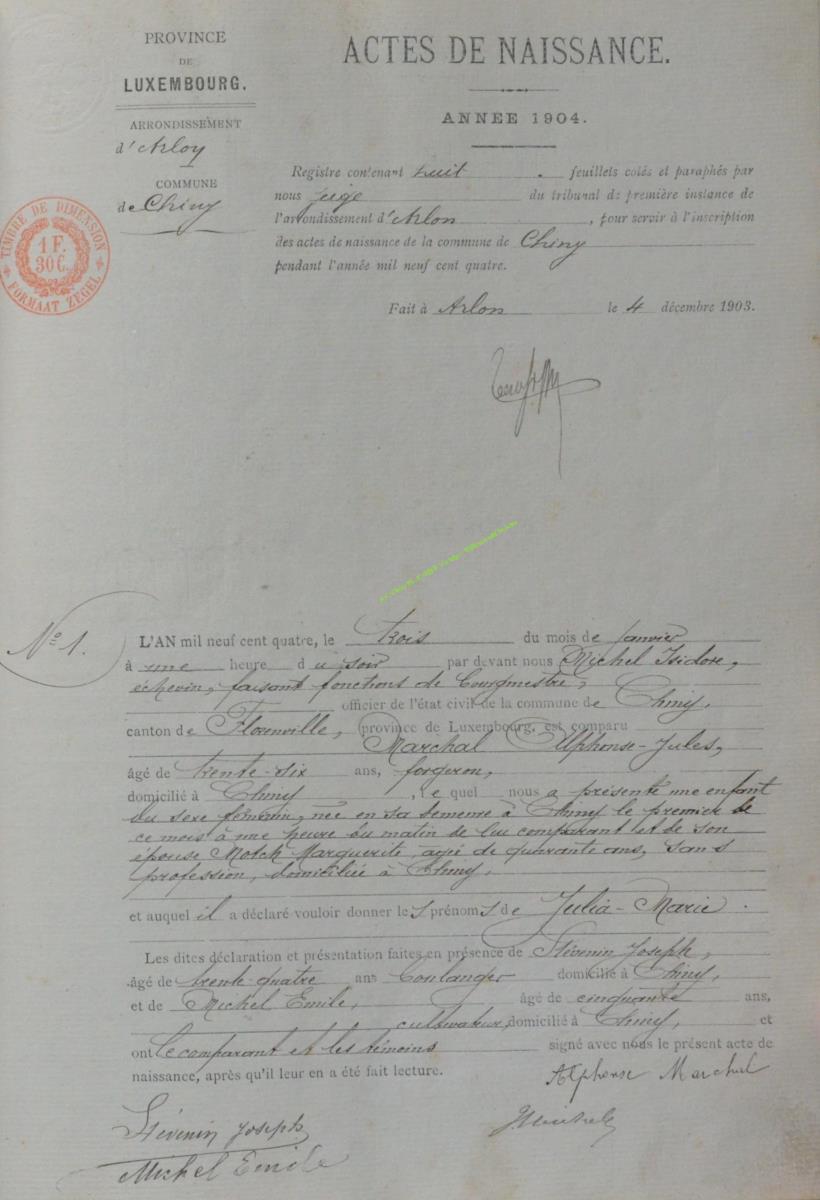 PROVINCE
DE
LUXEMBOURG.
ARRONDISSEMENT
d'Arlon
COMMUNE
de Chiny
TIMBRE DE DIMENSION
1 F.
30 C.
FORMAAT ZEGEL
ACTES DE NAISSANCE.
ANNEE 1904.
Registre contenant huit feuillets cotés et paraphés par
nous juge du tribunal de première instance de
l'arrondissement d'Arlon, pour servir à l'inscription
des actes de naissance de la commune de Chiny
pendant l'année mil neuf cent quatre.
Fait à Arlon le 4 décembre 1903.
N° 1.
L'AN mil neuf cent quatre, le trois du mois de janvier
à une heure du soir par devant nous Michel Isidore,
échevin, faisant fonctions de bourgmestre,
officier de l'état civil de la commune de Chiny,
canton de Florenville, province de Luxembourg, est comparu
Marchal Alphonse-Jules,
âgé de trente-six ans, forgeron,
domicilié à Chiny, lequel nous a présenté une enfant
du sexe féminin, née en sa demeure à Chiny le premier de
ce mois à une heure du matin de lui comparant et de son
épouse Motch Marguerite, agée de quarante ans, sans
profession, domiciliée à Chiny,
et auquel il a déclaré vouloir donner les prénoms de Julia-Marie.
Les dites déclaration et présentation faites en présence de Stévenin Joseph,
âgé de trente-quatre ans boulanger domicilié à Chiny,
et de Michel Emile, âgé de cinquante ans,
cultivateur, domicilié à Chiny, et
ont le comparant et les témoins signé avec nous le présent acte de
naissance, après qu'il leur en a été fait lecture.
Alphonse Marchal
Stévenin Joseph
JMichel
Michel Emile